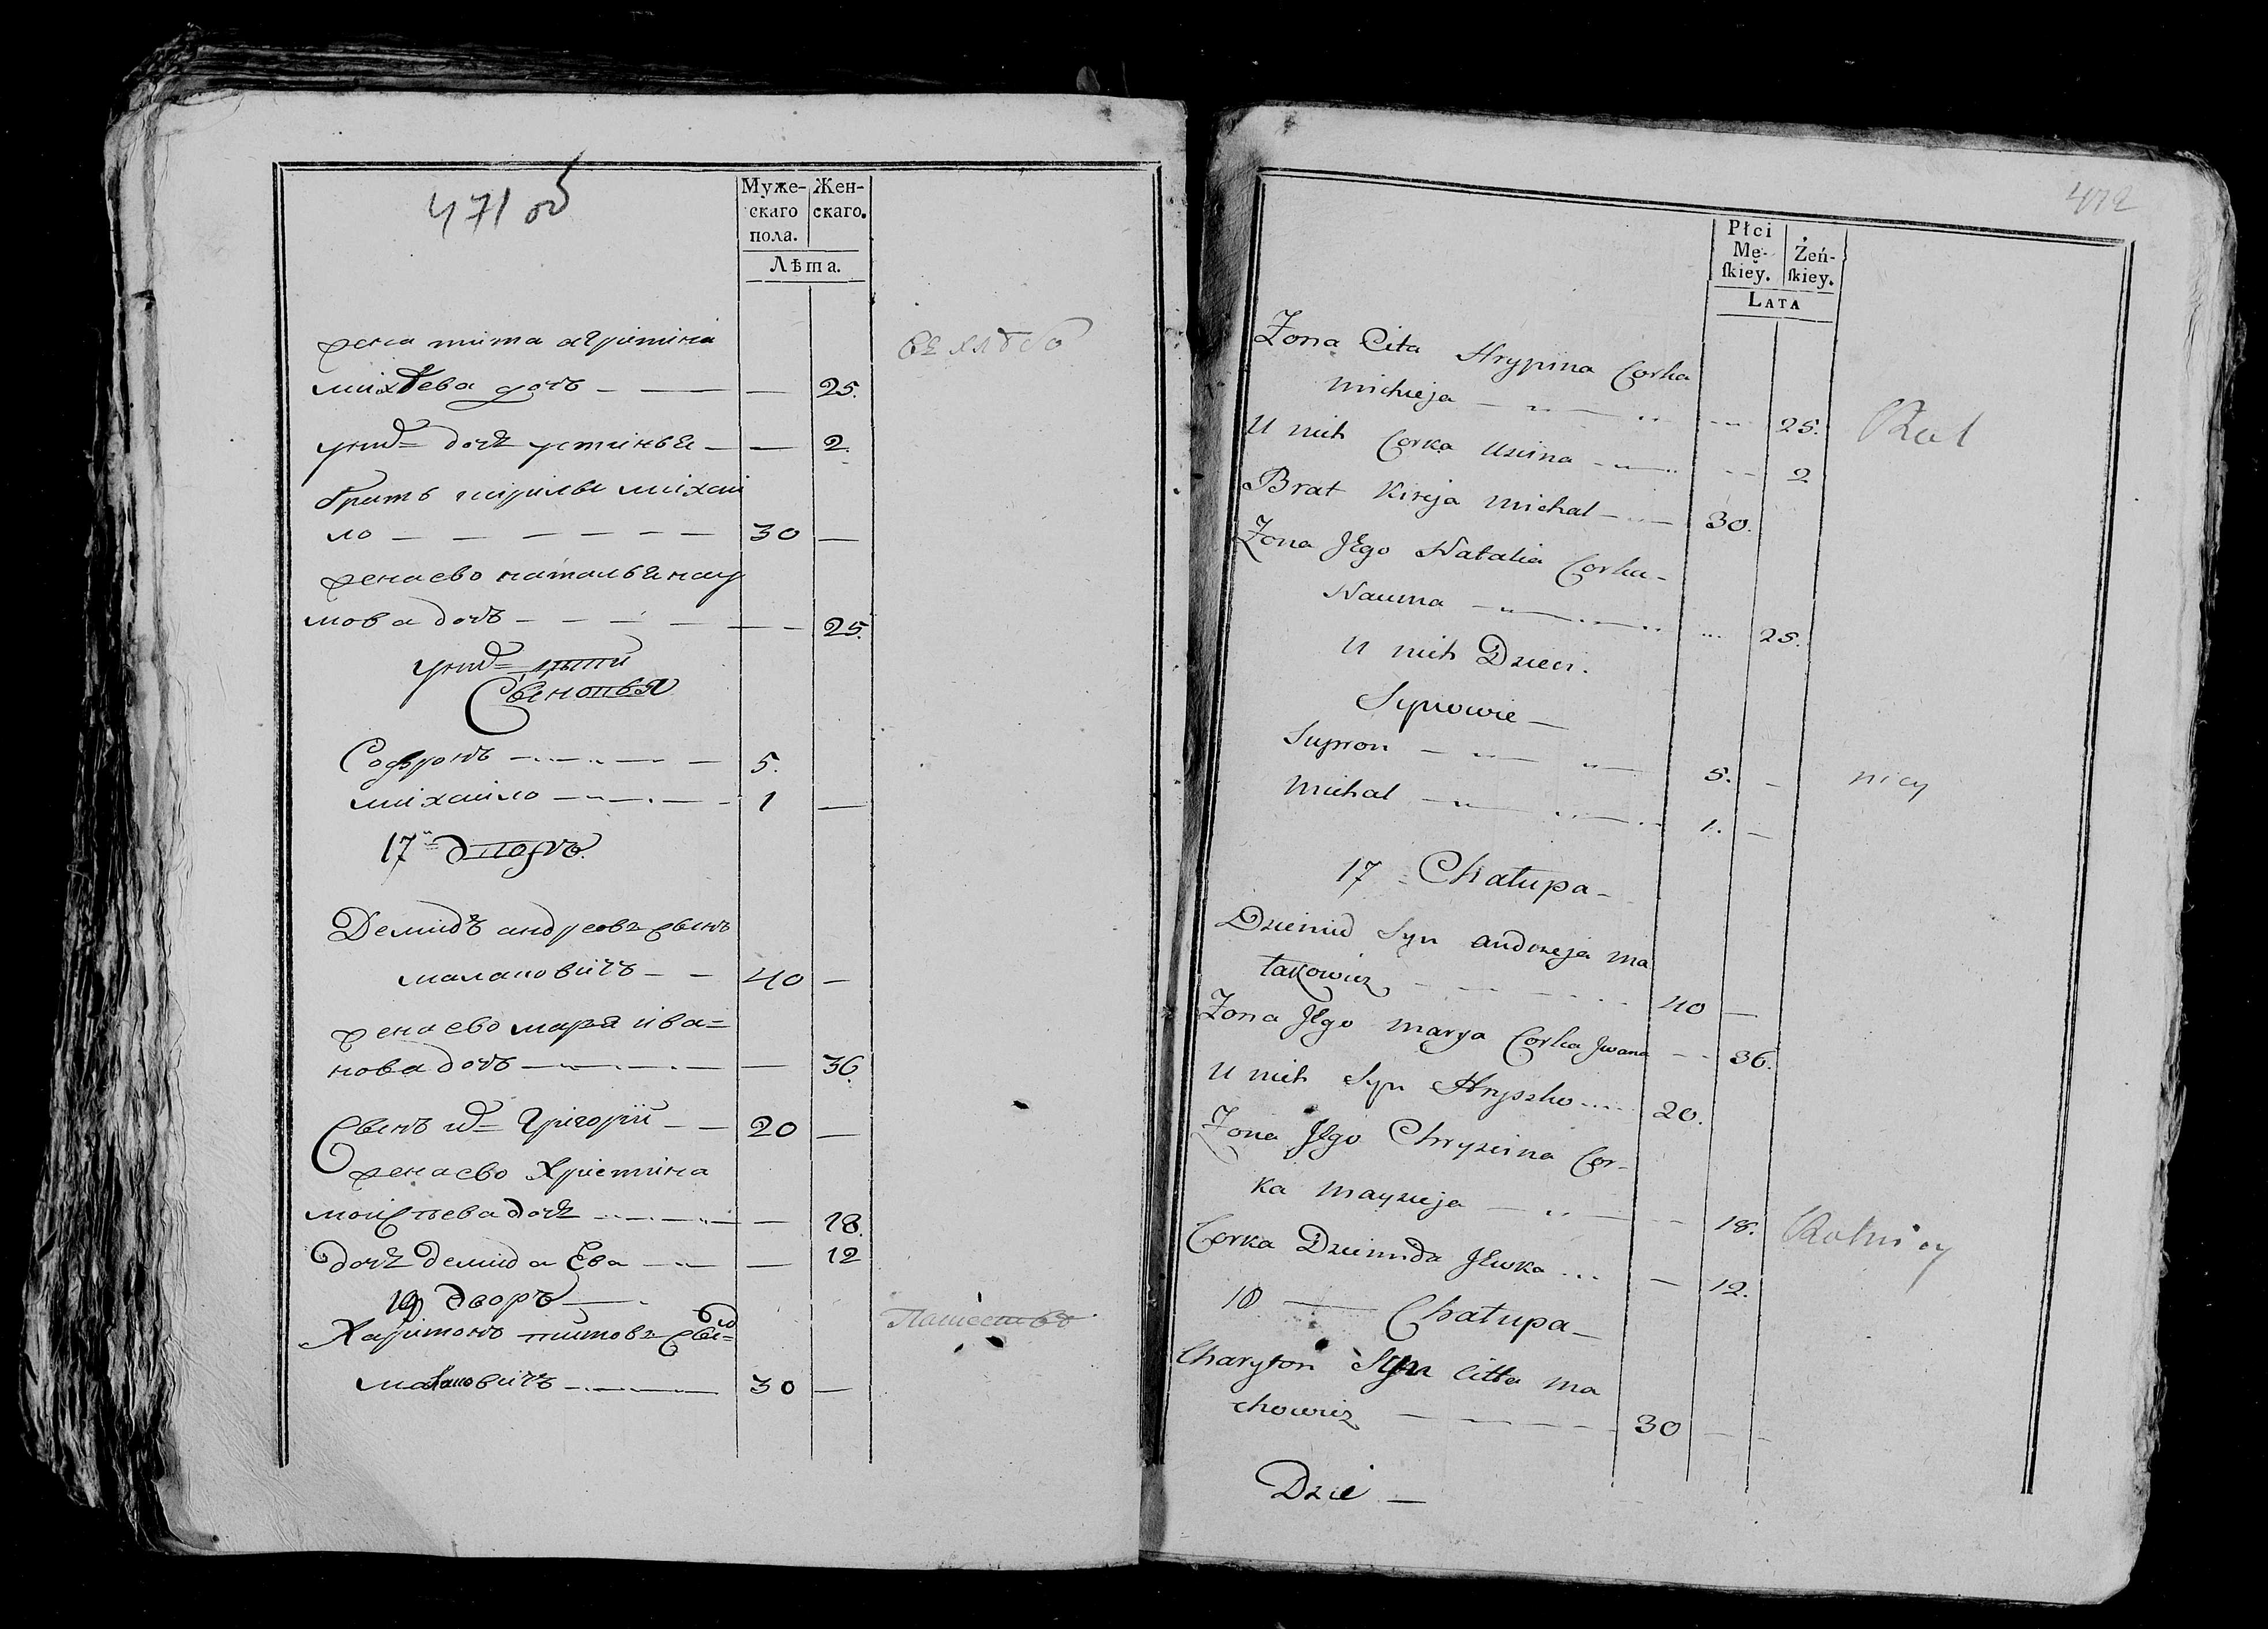 471 об
Муже-
скаго
пола.
Жен-
скаго.
Лѣта.
жена тита агрипина
михѣева дочь — — — 25.
у нихъ дочь устинья — — 2.
братъ кирилы михаи
ло — — — — — — 30 —
жена ево наталья нау
мова дочь — — — — — 25.
у нихъ дѣти
Сыновья
Софронъ — — — 5.
михаило — — — 1 —
17й дворъ.
Демидъ андреовъ сынъ
малаховичъ — — 40 —
жена ево маря ива=
нова дочь — — — — 36.
Сынъ их= Григорій — — 20 —
жена ево Христина
моисѣева дочь — — — 18.
дочь демида Ева — — — 12
18 дворъ —
Харитонъ титовъ сы=
малаховичъ — — 30 —
472
Płci
Mę-
ſkiey.
Żeń-
ſkiey.
LATA
Zona Cita Hrypina Corka
Michieja — — — 25.
Rol
U nich Corka Uscina — — — 2
Brat Kireja Michal — — 30.
Zona Jego Natalia Corka-
Nauma — — — 25.
U nich Dzieci.
Synowie —
Supron — — — 5. —
nicy
Michal — — — 1. —
17 - Chatupa -
Dziemid Syn Andrzeja Ma
łakowicz — — — 40 —
Zona Jego Marya Corka Jwana — — 36.
U nich Syn Hryszko .... 20.
Zona Jego Chryscina Cor-
ka Mayzieja — — — 18.
Rolnicy
Corka Dziemida Jewka ... — 12.
18 — Chatupa —
Charyton Syn Citta Ma
chowicz — — — — 30 — —
Dzie —